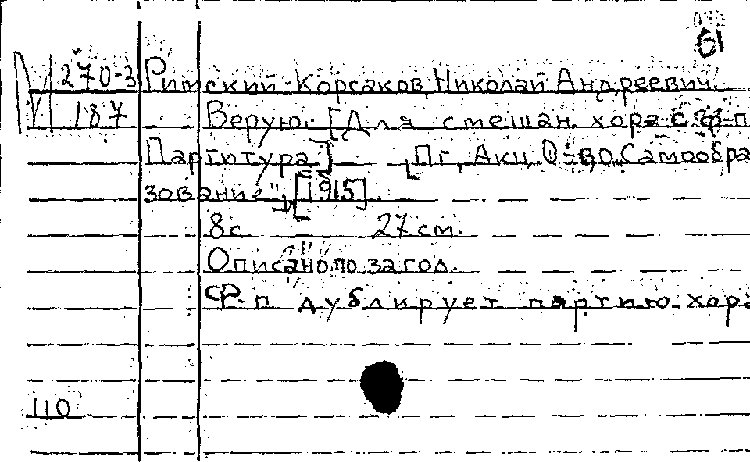 61
270-3 Римский-Корсаков, Николай Андреевич.
187 Верую. [Для смешан. хора с ф-п.
Партитура] Пг, Акц. О-во „Самообра
зование", [1915]
8с. 27 см.
Описано по загол.
Ф-п дублирует партию хора
110